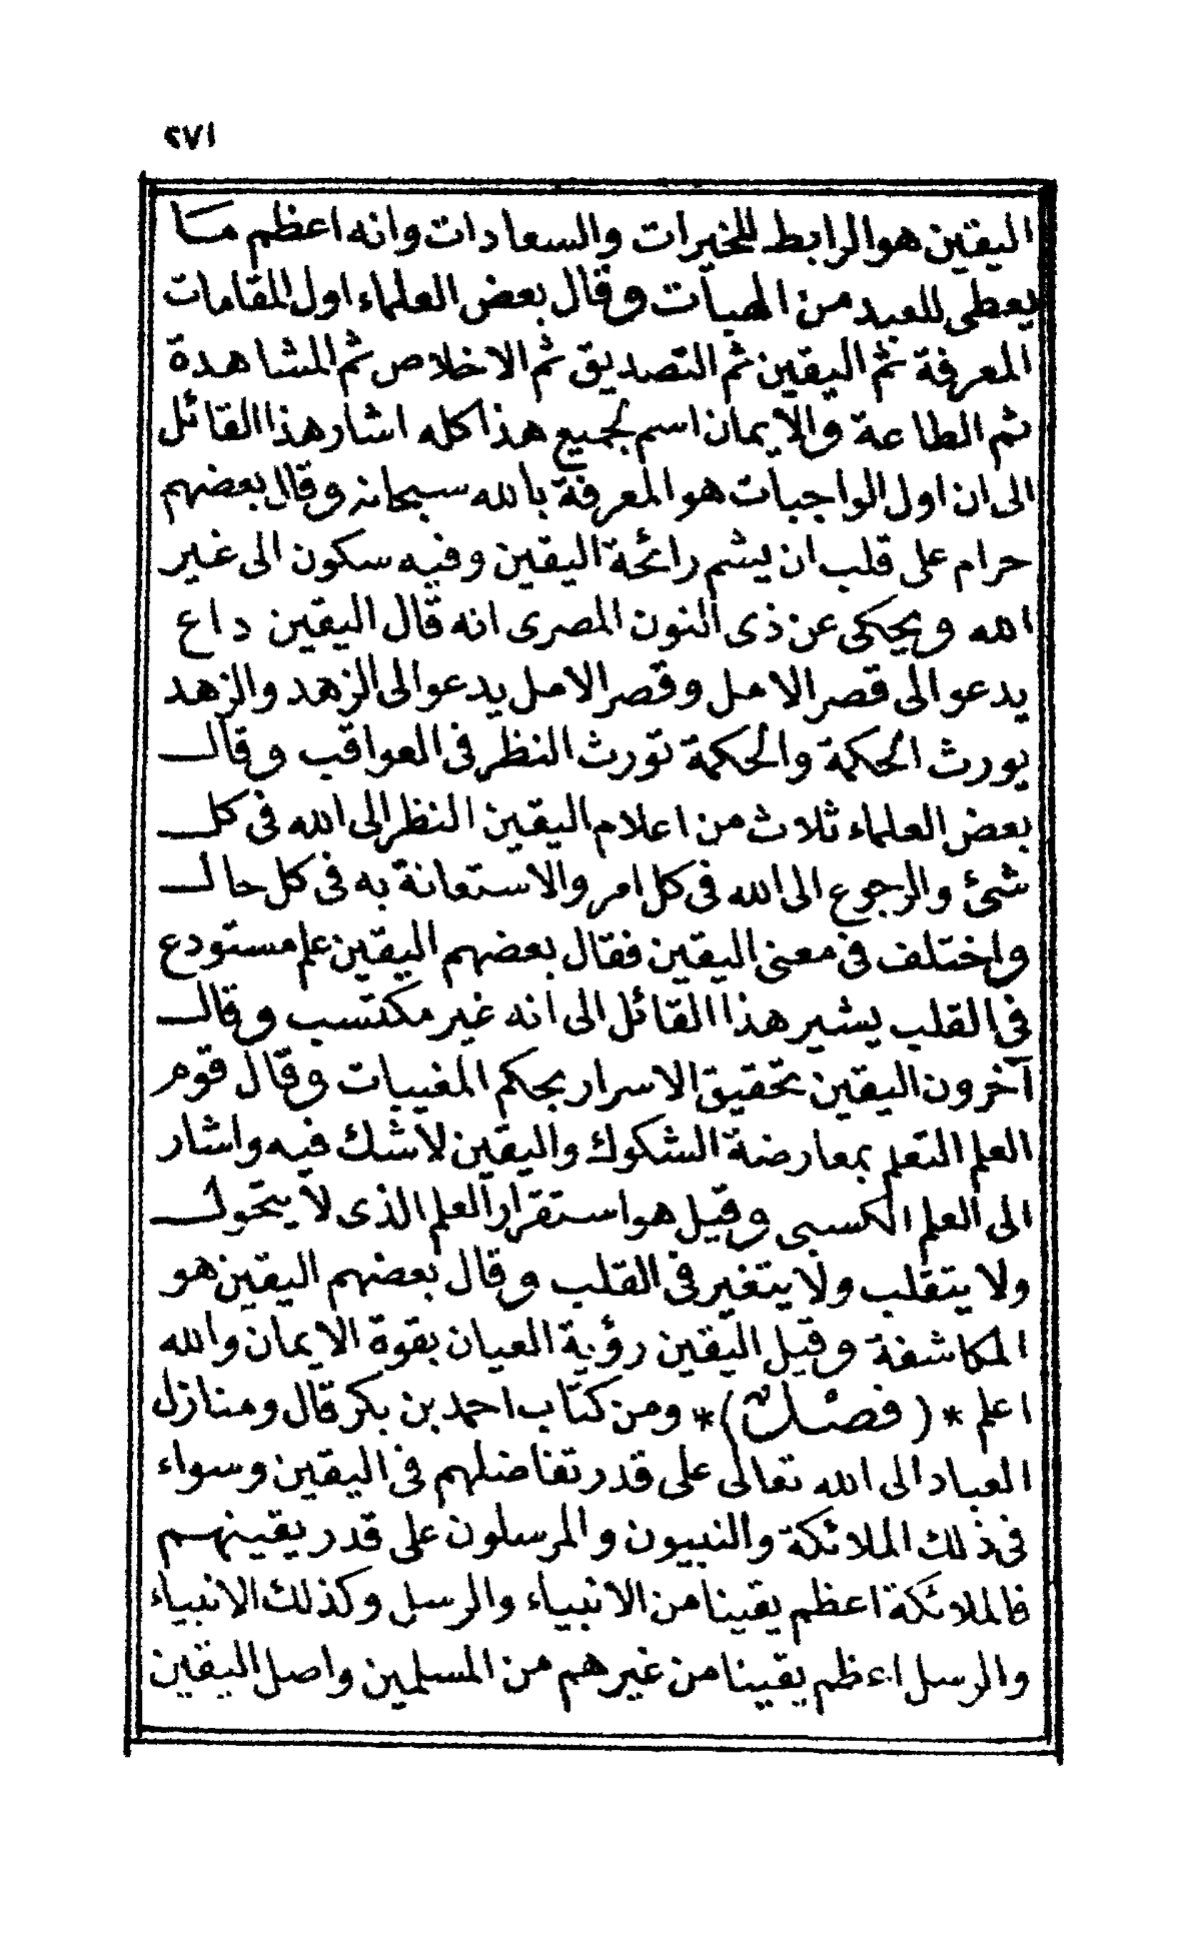 ٢٧١
اليقين هو الرابط للخيرات والسعادات وانه اعظم ما
يعطى للعبد من الهبات وقال بعض العلماء اول المقامات
المعرفة ثم اليقين ثم التصديق ثم الاخلاص ثم المشاهدة
ثم الطاعة والايمان اسم لجميع هذا كله اشار هذا القائل
الى ان اول الواجبات هو المعرفة بالله سبحانه وقال بعضهم
حرام على قلب ان يشم رائحة اليقين وفيه سكون الى غير
الله ويحكى عن ذى النون المصرى انه قال اليقين داع
يدعو الى قصر الامل وقصر الامل يدعو الى الزهد والزهد
يورث الحكمة والحكمة تورث النظر فى العواقب وقال
بعض العلماء ثلاث من اعلام اليقين النظر الى الله فى كل
شئ والرجوع الى الله فى كل امر والاستعانة به فى كل حال
واختلف فى معنى اليقين فقال بعضهم اليقين علم مستودع
فى القلب يشير هذا القائل الى انه غير مكتسب وقال
آخرون اليقين تحقيق الاسرار بحكم المغيبات وقال قوم
العلم التعلم بمعارضة الشكوك واليقين لاشك فيه واشار
الى العلم الكسبى وقيل هو استقرار العلم الذى لا يتحول
ولا يتقلب ولا يتغير فى القلب وقال بعضهم اليقين هو
المكاشفة وقيل اليقين رؤية العيان بقوة الايمان والله
اعلم *(فصل)* ومن كتاب احمد بن بكر قال ومنازل
العباد الى الله تعالى على قدر تفاضلهم فى اليقين وسواء
فى ذلك الملائكة والنبيون والمرسلون على قدر يقينهم
فالملائكة اعظم يقينا من الانبياء والرسل وكذلك الانبياء
والرسل اعظم يقينا من غيرهم من المسلمين واصل اليقين